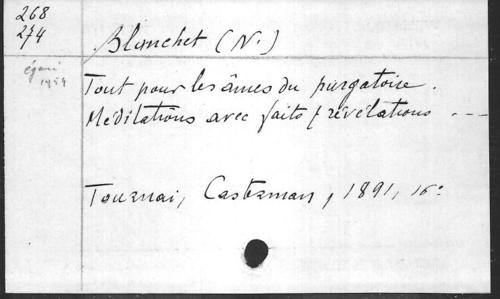 268
274
Blanchet (N.)
égaré
1954
Tout pour les âmes du purgatoire.
Méditations avec faits, révélations ---
Tournai, Casterman, 1891, 16°